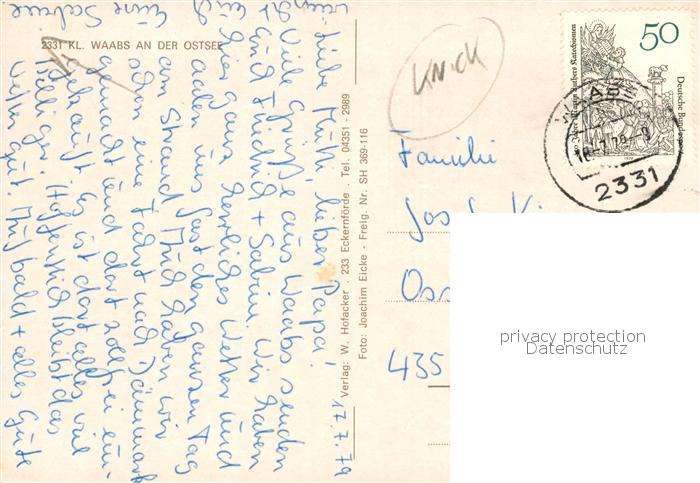 2331 KL. WAABS AN DER OSTSEE
17.7.79
Liebe Mutti, lieber Papa!
Viele Grüße aus Waabs senden
Euch Friedrich + Sabine. Wir haben
hier ganz herrliches Wetter und
aalen uns fast den ganzen Tag
am Strand. Auch haben wir
schon eine Fahrt nach Dänemark
gemacht und dort zollfrei ein-
gekauft. Es ist dort alles viel
billiger. Hoffentlich bleibt das
Wetter gut. Auf bald + alles Gute
Eure Sabine
Verlag: W. Hofacker . 233 Eckernförde . Tel. 04351 - 2989
Foto: Joachim Eicke - Freig. Nr. SH 369-116
KNICK
50
Deutsche Bundespost
1979
WAABS
2331
Familie
Oss
435
privacy protection
Datenschutz